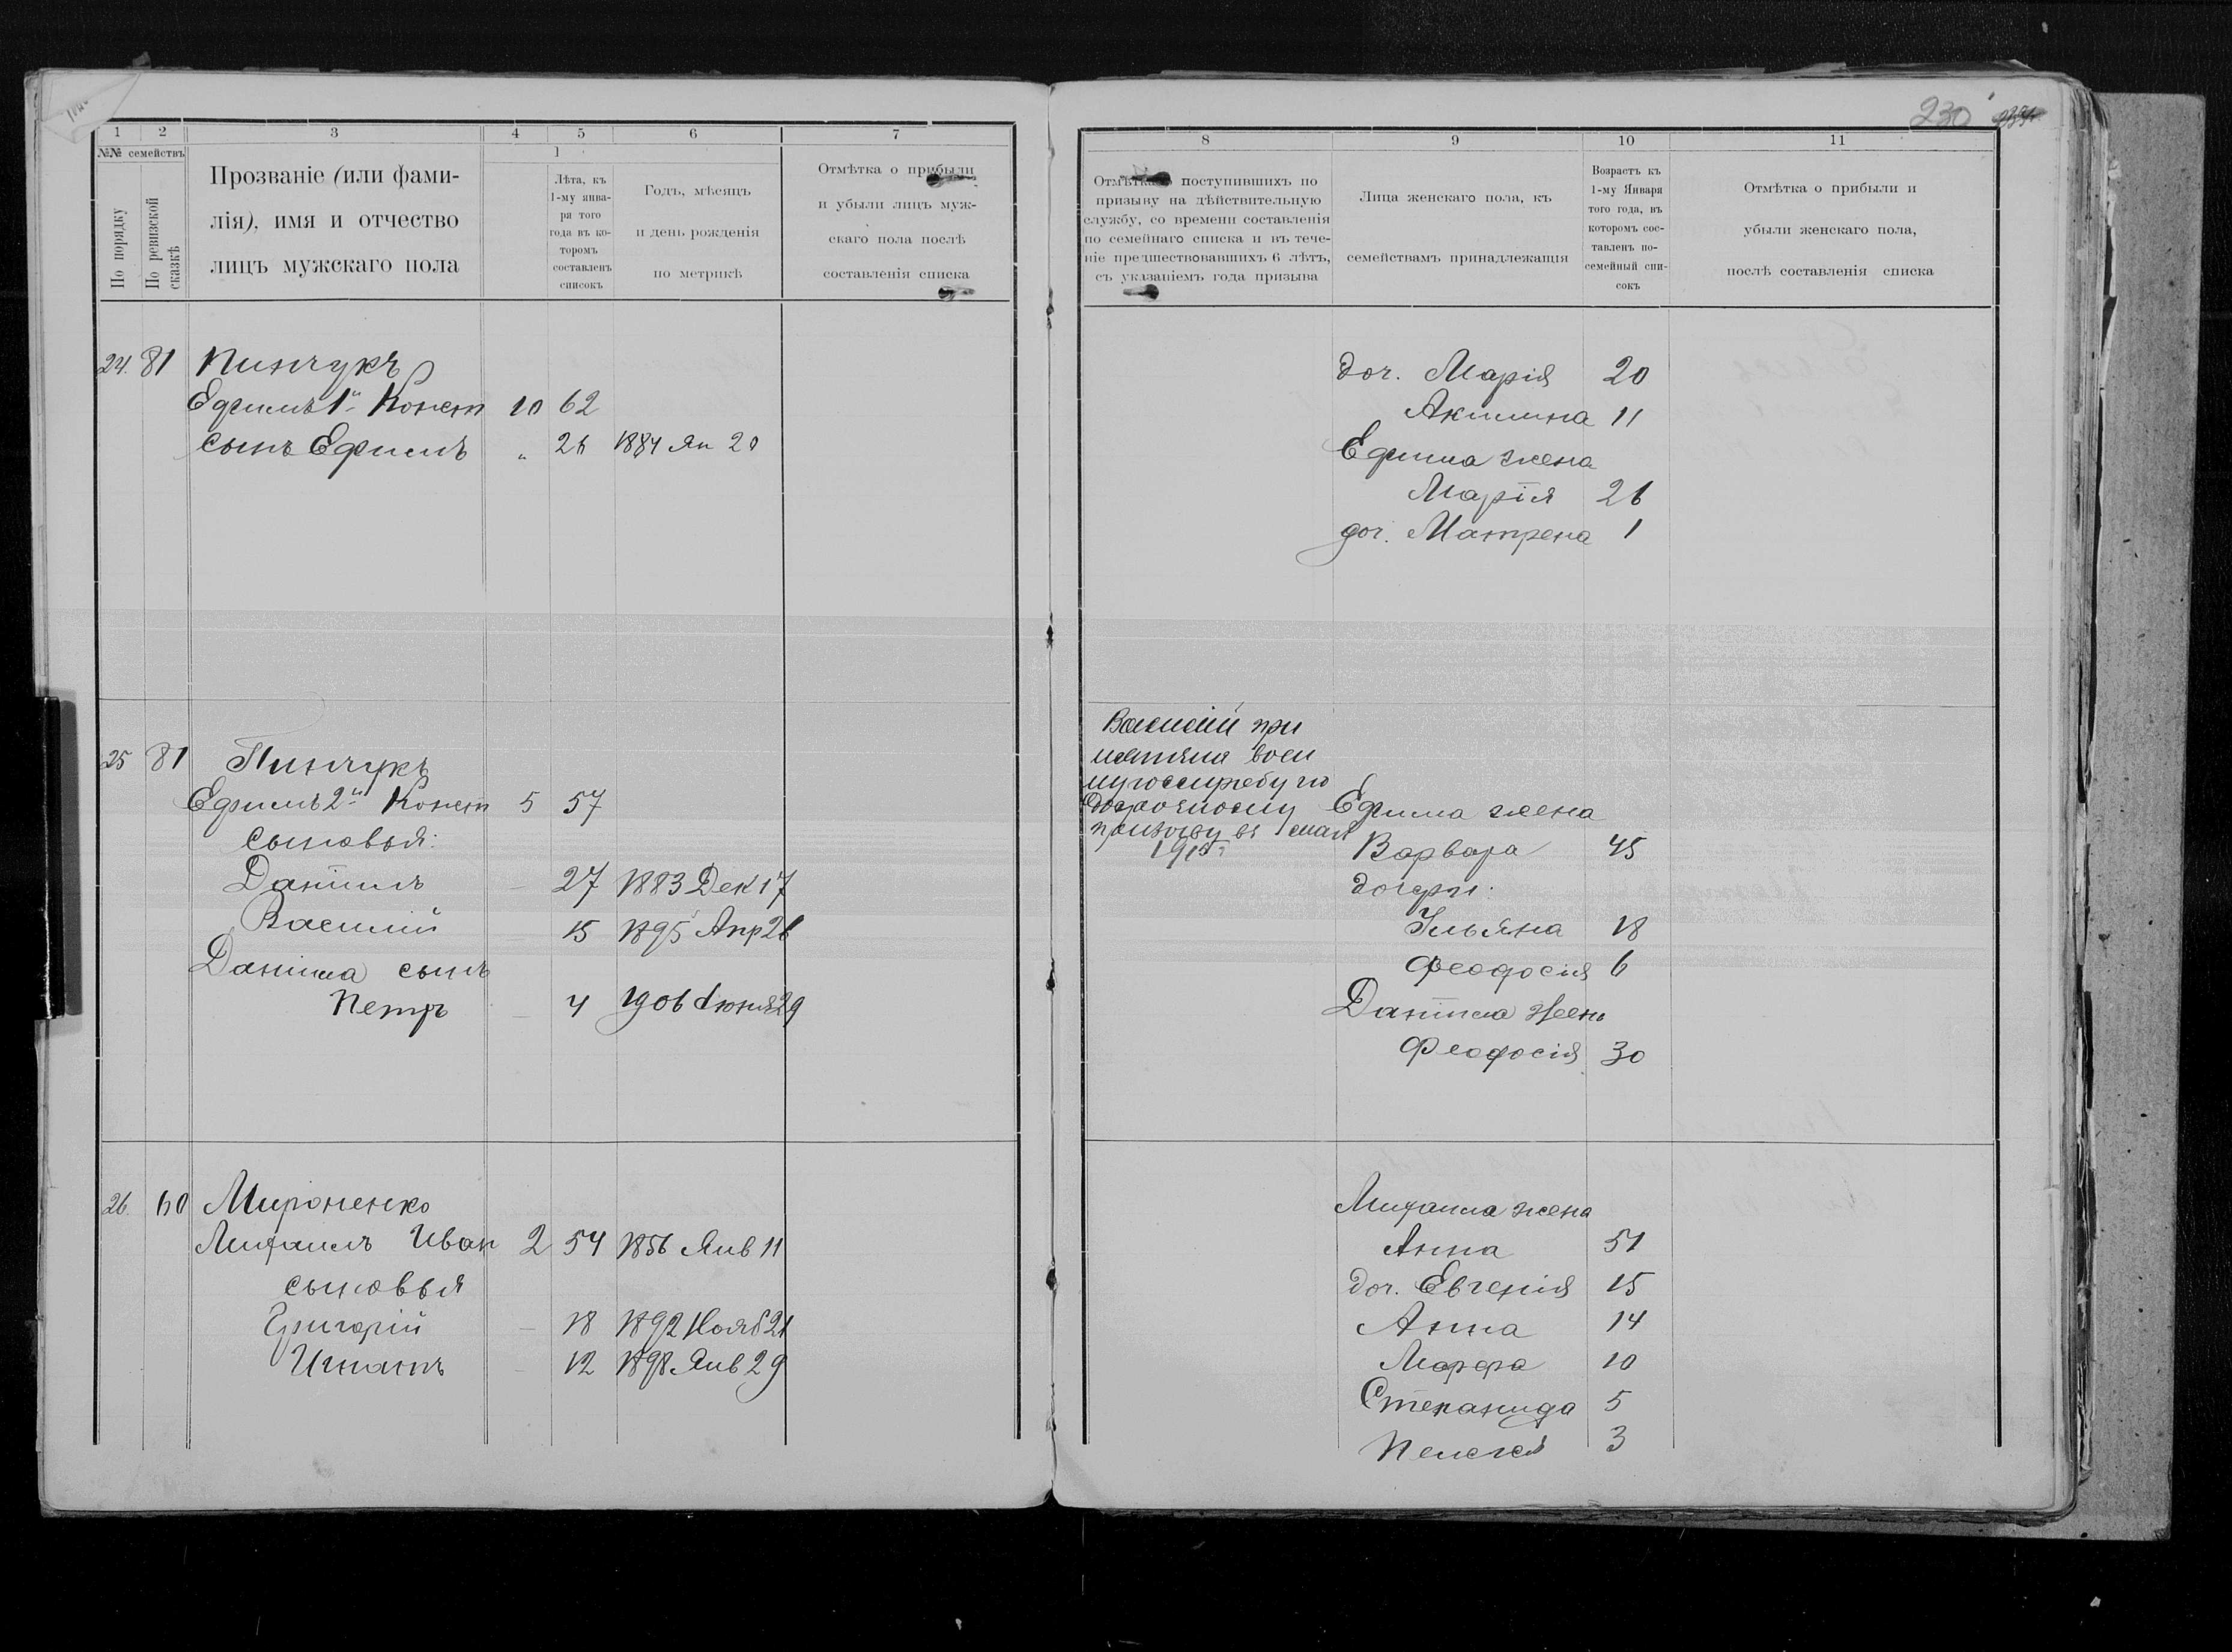 230
1 2 3 4 5 6 7
№№ семействъ
По порядку
По ревизской сказкѣ
Прозваніе (или фами-
лія), имя и отчество
лицъ мужскаго пола
1
Лѣта, къ
1-му янва-
ря того
года въ ко-
торомъ
составленъ
списокъ
Годъ, мѣсяцъ
и день рожденія
по метрикѣ
Отмѣтка о прибыли
и убыли лицъ муж-
скаго пола послѣ
составленія списка
24. 81 Пинчукъ
Ефимъ 1й Конст 10 62
сынъ Ефимъ " 26 1884 Ян 20
25 81 Пинчукъ
Ефимъ 2й Конст 5 57
сыновья:
Даніилъ 27 1883 Дек 17
Василій 15 1895 Апр 26
Даніила сынъ
Петръ 4 1906 Іюня 29
26. 60 Мироненко
Михаилъ Иван 2 54 1856 Янв 11
сыновья
Григорій 18 1892 Нояб 21
Игнатъ 12 1898 Янв 29
8 9 10 11
Отмѣтка о поступившихъ по
призыву на дѣйствительную
службу, со времени составленія
по семейнаго списка и въ тече-
ніе предшествовавшихъ 6 лѣтъ,
съ указаніемъ года призыва
Лица женскаго пола, къ
семействамъ принадлежащія
Возрастъ къ
1-му Января
того года, въ
которомъ сос-
тавленъ по-
семейный спи-
сокъ
Отмѣтка о прибыли и
убыли женскаго пола,
послѣ составленія списка
доч. Марія 20
Акилина 11
Ефима жена
Марія 26
доч. Матрена 1
Василій при
нятъ на воен
ную службу по
досрочному
призыву въ маѣ
1915 г.
Ефима жена
Варвара 45
дочери:
Ульяна 18
Феодосія 6
Даніила жена
Феодосія 30
Михаила жена
Анна 51
доч. Евгенія 15
Анна 14
Марфа 10
Степанида 5
Пелагея 3